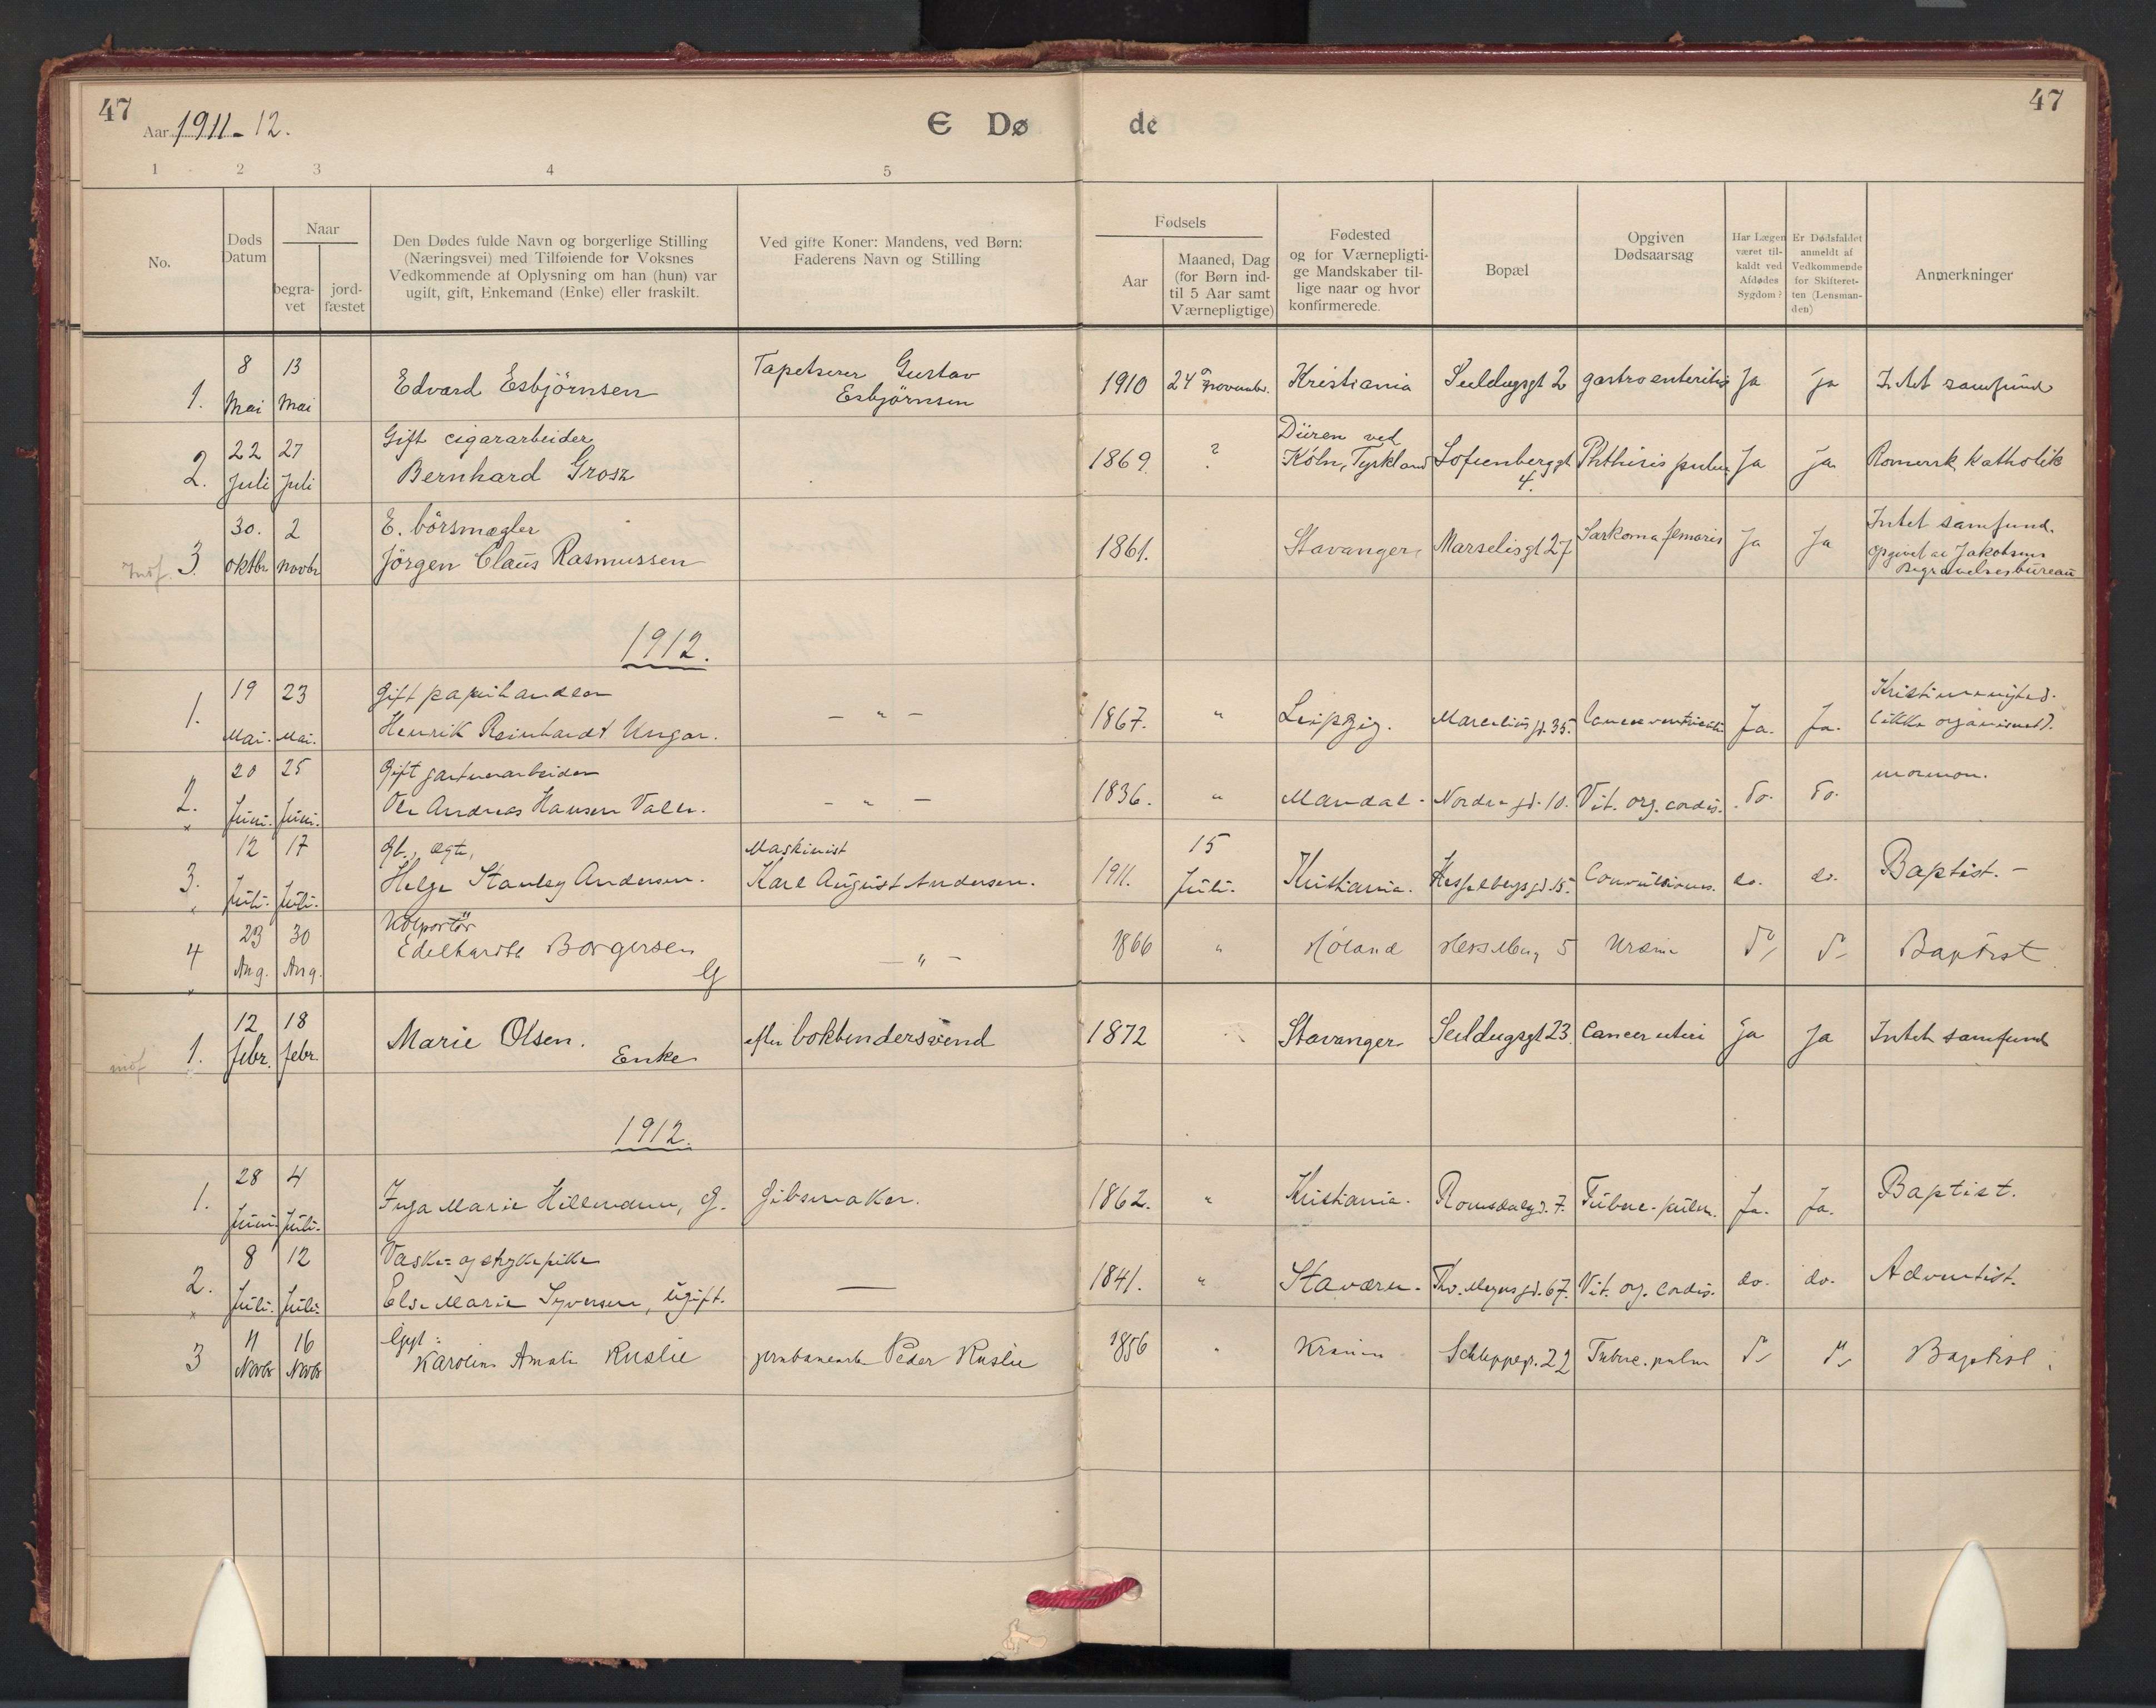 47
47
Aar 1911-12.
E Dø
de
1 2 3 4 5
No.
Døds Datum
Naar
begra-vet
jord-fæstet
Den Dødes fulde Navn og borgerlige Stilling
(Næringsvei) med Tilføiende for Voksnes
Vedkommende af Oplysning om han (hun) var
ugift, gift, Enkemand (Enke) eller fraskilt.
Ved gifte Koner: Mandens, ved Børn:
Faderens Navn og Stilling
Fødsels
Aar
Maaned, Dag
(for Børn ind-
til 5 Aar samt
Værnepligtige)
Fødested
og for Værnepligti-
ge Mandskaber til-
lige naar og hvor
konfirmerede.
Bopæl
Opgiven
Dødsaarsag
Har Lægen
været til-
kaldt ved
Afdødes
Sygdom?
Er Dødsfaldet
anmeldt af
Vedkommende
for Skifteret-
ten (Lensman-
den)
Anmerkninger
1. 8 Mai 13 Mai Edvard Esbjörnsen Tapetserer Gustav Esbjörnsen 1910 24 novembr. Kristiania Seildugsgt 2 gastroenteritis Ja Ja Intet samfund
2. 22 Juli 27 Juli Gift cigararbeider
Bernhard Grosz 1869. ? Düren ved Köln, Tyskland Sofienberggt 4. Phthisis pulm Ja Ja Romersk Katholik
3. 30. oktbr 2 novbr E. börsmægler
Jörgen Claus Rasmussen 1861. Stavanger Marselisgt 27 Sarkoma femoris Ja Ja Intet samfund.
opgivet av Jakobsens
Begravelsesbureau
1912.
1. 19 Mai. 23 Mai. Gift papirhandler
Henrik Reinhardt Ungar. - " - 1867. " Leipzig. Marcelius gd. 35. Cancer ventriculi Ja. Ja. (ikke organiseret).
2. 20 Juni. 25 Juni. Gift gartnerarbeider
Ole Andreas Hansen Valle. - " - 1836. " Mandal. Nordre gd. 10. Vit. org. cordis. do. do. mormon.
3. 12 Juli. 17 Juli. Gb., ægte,
Helge Stanley Andersen. Maskinist
Karl August Andersen. 1911. 15 Juli. Kristiania. Hesselbergs gd. 15. Convulsiones. do. do. Baptist. -
4 23 Aug. 30 Aug. Kolportör
Edelhardt Borgersen G - " - 1866 " Høland 5 Uræmi Baptist
1. 12 febr. 18 febr. Marie Olsen. Enke efter bokbindersvend 1872 Stavanger Seildugsgt 23. Cancer uteri Ja Ja Intet samfund
1912.
1. 28 Juni. 4 Juli. Inga Marie Hillerudun, G. Gibsmaker. 1862. " Kristiania. Romsdalsgd. 7. Tuberc. pulm. Ja. Ja. Baptist.
2. 8 Juli. 12 Juli. Vaske- og strykepike
Else Marie Syversen, ugift. — 1841. " Staværn. Thv. Meyers gd. 67. Vit. org. cordis. do. do. Adventist.
3 11 Novbr 16 Novbr Gift:
Karoline Amalie Ruslie Peder Ruslie 1856 " Krania Schleppegr. 22 Tuberc. pulm Baptist